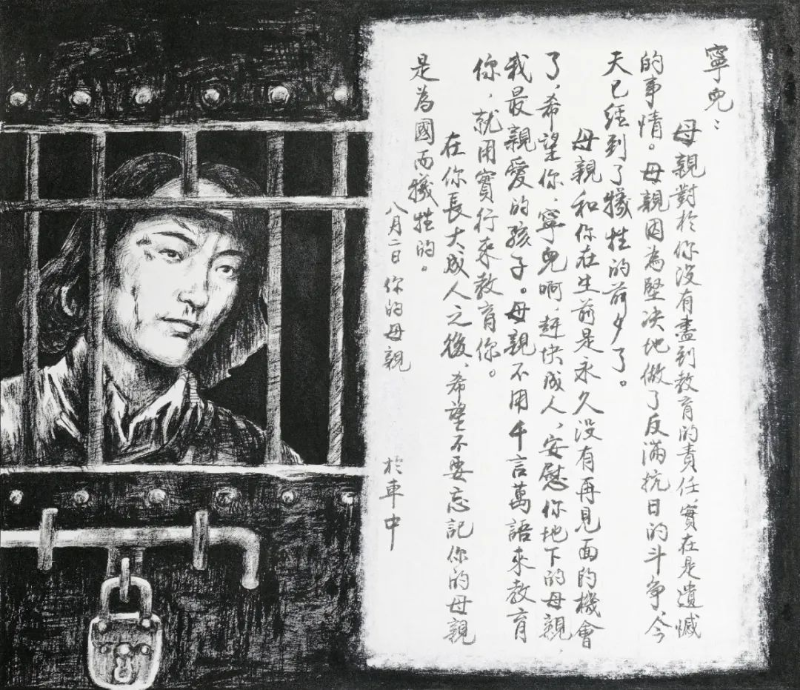 寧兒：
母親對於你沒有盡到教育的責任實在是遺憾
的事情。母親因為堅决地做了反滿抗日的斗争，今
天已經到了犧牲的前夕了。
母親和你在生前是永久沒有再見面的機會
了，希望你，寧兒啊，赶快成人，安慰你地下的母親，
我最親愛的孩子。母親不用千言萬語來教育
你，就用實行來教育你。
在你長大成人之後，希望不要忘記你的母親
是為國而犧牲的。
八月二日 你的母親 於車中